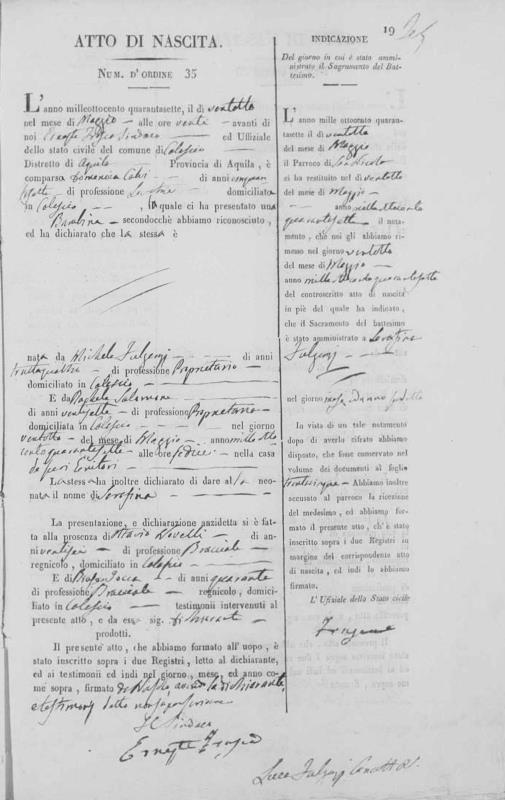 19
ATTO DI NASCITA.
NUM. D'ORDINE 35
L'anno milleottocento quarantasette, il dì ventotto
nel mese di Maggio – alle ore venti – avanti di
noi Ernesto Sindaco ed Uffiziale
dello stato civile del comune di
Distretto di Aquila Provincia di Aquila, è
comparsa Domenica di anni
di professione domiciliata
in la quale ci ha presentato una
Bambina – secondocchè abbiamo riconosciuto,
ed ha dichiarato che la stessa è
nata da Michele Fulgenzj di anni
trentaquattro – di professione Proprietario
domiciliato in
E da Raphaela Salomone
di anni ventisette – di professione Proprietaria
domiciliata in nel giorno
ventotto – del mese di Maggio – anno mille otto
cento quarantasette – alle ore sedici – nella casa
de' suoi Genitori
La stessa ha inoltre dichiarato di dare alla neo-
nata il nome di Serafina
La presentazione, e dichiarazione anzidetta si è fat-
ta alla presenza di Novelli – di an-
ni ventisei – di professione Bracciale
regnicolo, domiciliato in
E di di anni quaranta
di professione Bracciale regnicolo, domici-
liato in testimonii intervenuti al
presente atto, e da esso sig.
prodotti.
Il presente atto, che abbiamo formato all'uopo, è
stato inscritto sopra i due Registri, letto al dichiarante,
ed ai testimonii ed indi nel giorno, mese, ed anno co-
me sopra, firmato da Noi la dichiarante,
e testimonj detto non saper scrivere
Il Sindaco
Ernesto
INDICAZIONE
Del giorno in cui è stato ammi-
nistrato il Sagramento del Bat-
tesimo.
L'anno mille ottocento quaran-
tasette il dì ventotto
del mese di Maggio
il Parroco di
ci ha restituito nel dì ventotto
del mese di Maggio –
anno milleottocento
quarantasette il nota-
mento, che noi gli abbiamo ri-
messo nel giorno ventotto
del mese di Maggio
anno milleottocentoquarantasette
del controscritto atto di nascita
in piè del quale ha indicato,
che il Sacramento del battesimo
è stato amministrato a Serafina
Fulgenzj
nel giorno mese ed anno suddetto
In vista di un tale notamento
dopo di averlo cifrato abbiamo
disposto, che fosse conservato nel
volume dei documenti al foglio
trentacinque – Abbiamo inoltre
accusato al parroco la ricezione
del medesimo, ed abbiamo for-
mato il presente atto, ch'è stato
inscritto sopra i due Registri in
margine del corrispondente atto
di nascita, ed indi lo abbiamo
firmato.
L'Ufiziale dello Stato civile